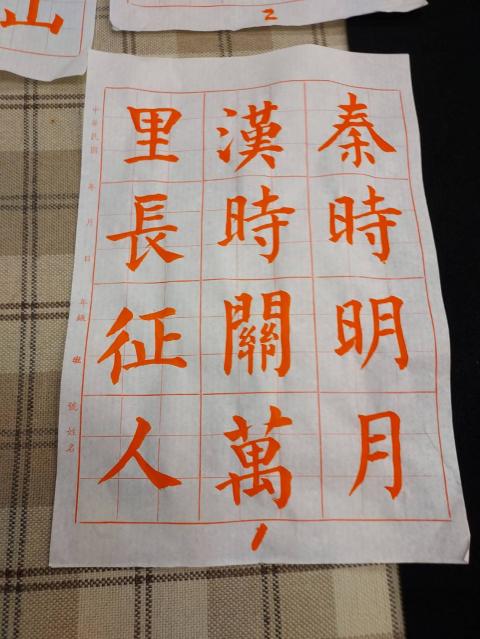 秦時明月
漢時關萬
里長征人
中華民國 年 月 日 年級 班 號 姓名
1
2
山